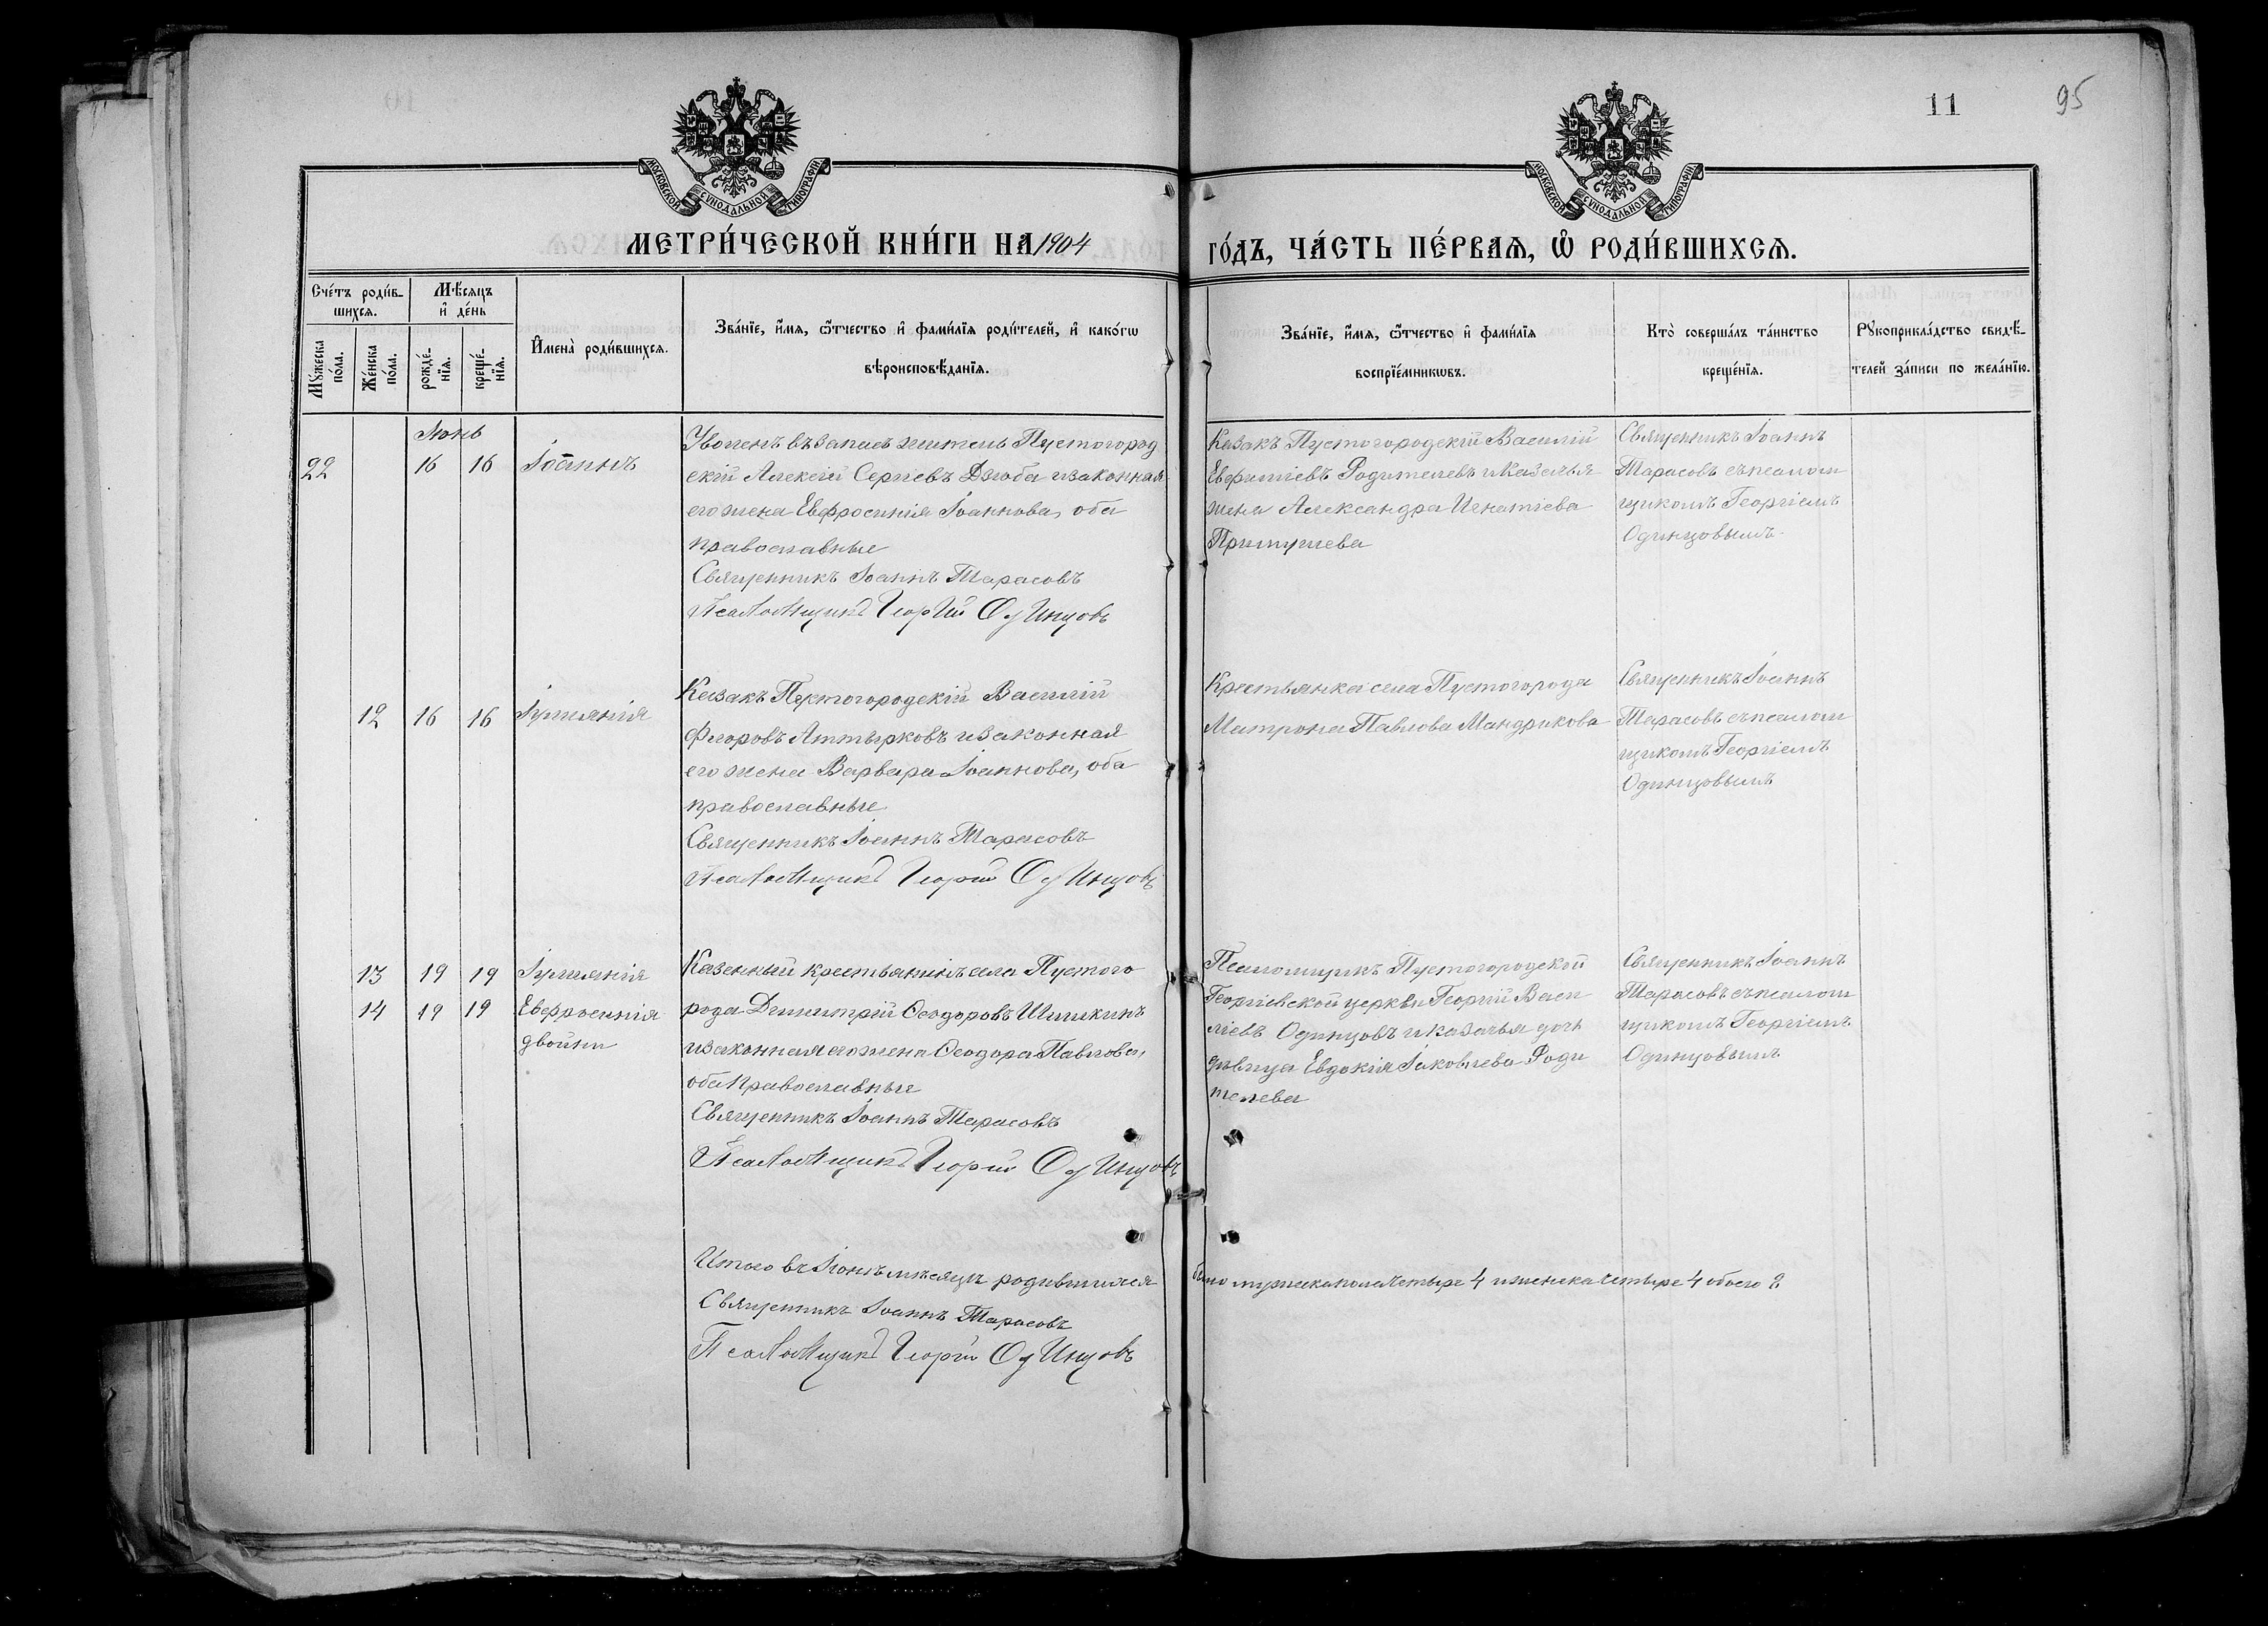 11
95
МОСКОВСКОЙ СѴНОДАЛЬНОЙ ТИПОГРАФІИ
МОСКОВСКОЙ СѴНОДАЛЬНОЙ ТИПОГРАФІИ
МЕТРИ́ЧЕСКОЙ КНИ́ГИ НА 1904 ГО́ДЪ, ЧА́СТЬ ПЕ́РВАѦ, Ѡ҆ РОДИ́ВШИХСѦ.
Сче́тъ роди́в-
шихсѧ.
Мѣ́сѧцъ
и҆ де́нь
Мꙋ́жеска
по́ла.
Же́нска
по́ла.
рожде́-
нїѧ.
креще́-
нїѧ.
И҆мена̀ роди́вшихсѧ.
Зва́нїе, и҆́мѧ, ѻ҆́тчество и҆ фами́лїѧ роди́телей, и҆ како́гѡ
вѣроисповѣ́данїѧ.
Зва́нїе, и҆́мѧ, ѻ҆́тчество и҆ фами́лїѧ
воспрїе́мникѡвъ.
Кто̀ соверша́лъ та́инство
креще́нїѧ.
Рꙋкоприкла́дство свидѣ́-
телей за́писи по жела́нїю.
Іюнь
22
16 16
Іоаннъ
Уволенъ въ запасъ житель Пустогород
скій Алексій Сергіевъ Дзюба и законная
его жена Евфросинія Іоаннова, оба
православные
Священникъ Іоаннъ Тарасовъ
Псаломщикъ Георгій Одинцовъ
Казакъ Пустогородскій Василій
Евфиміевъ Родителевъ и Казачья
жена Александра Игнатіева
Священникъ Іоаннъ
Тарасовъ съ псалом
щикомъ Георгіемъ
Одинцовымъ
12 16 16
Іуліанія
Казакъ Пустогородскій Василій
Флоровъ и законная
его жена Варвара Іоаннова, оба
православные
Священникъ Іоаннъ Тарасовъ
Псаломщикъ Георгій Одинцовъ
Крестьянка села Пустогорода
Матрона Павлова Мандрикова
Священникъ Іоаннъ
Тарасовъ съ псалом
щикомъ Георгіемъ
Одинцовымъ
13 19 19
Іуліанія
14 19 19
Евфросинія
двойни
Казенный крестьянинъ села Пустого
рода Димитрій Ѳеодоровъ Шишкинъ
и законная его жена Ѳеодора Павлова,
оба православные
Священникъ Іоаннъ Тарасовъ
Псаломщикъ Георгій Одинцовъ
Псаломщикъ Пустогородской
Георгіевской церкви Георгій Васи
ліевъ Одинцовъ и казачья дочь
дѣвица Евдокія Іаковлева Роди
телева
Священникъ Іоаннъ
Тарасовъ съ псалом
щикомъ Георгіемъ
Одинцовымъ
Итого въ Іюнѣ мѣсяцѣ родившихся было мужеска пола четыре 4 и женска четыре 4 обоего 8
Священникъ Іоаннъ Тарасовъ
Псаломщикъ Георгій Одинцовъ